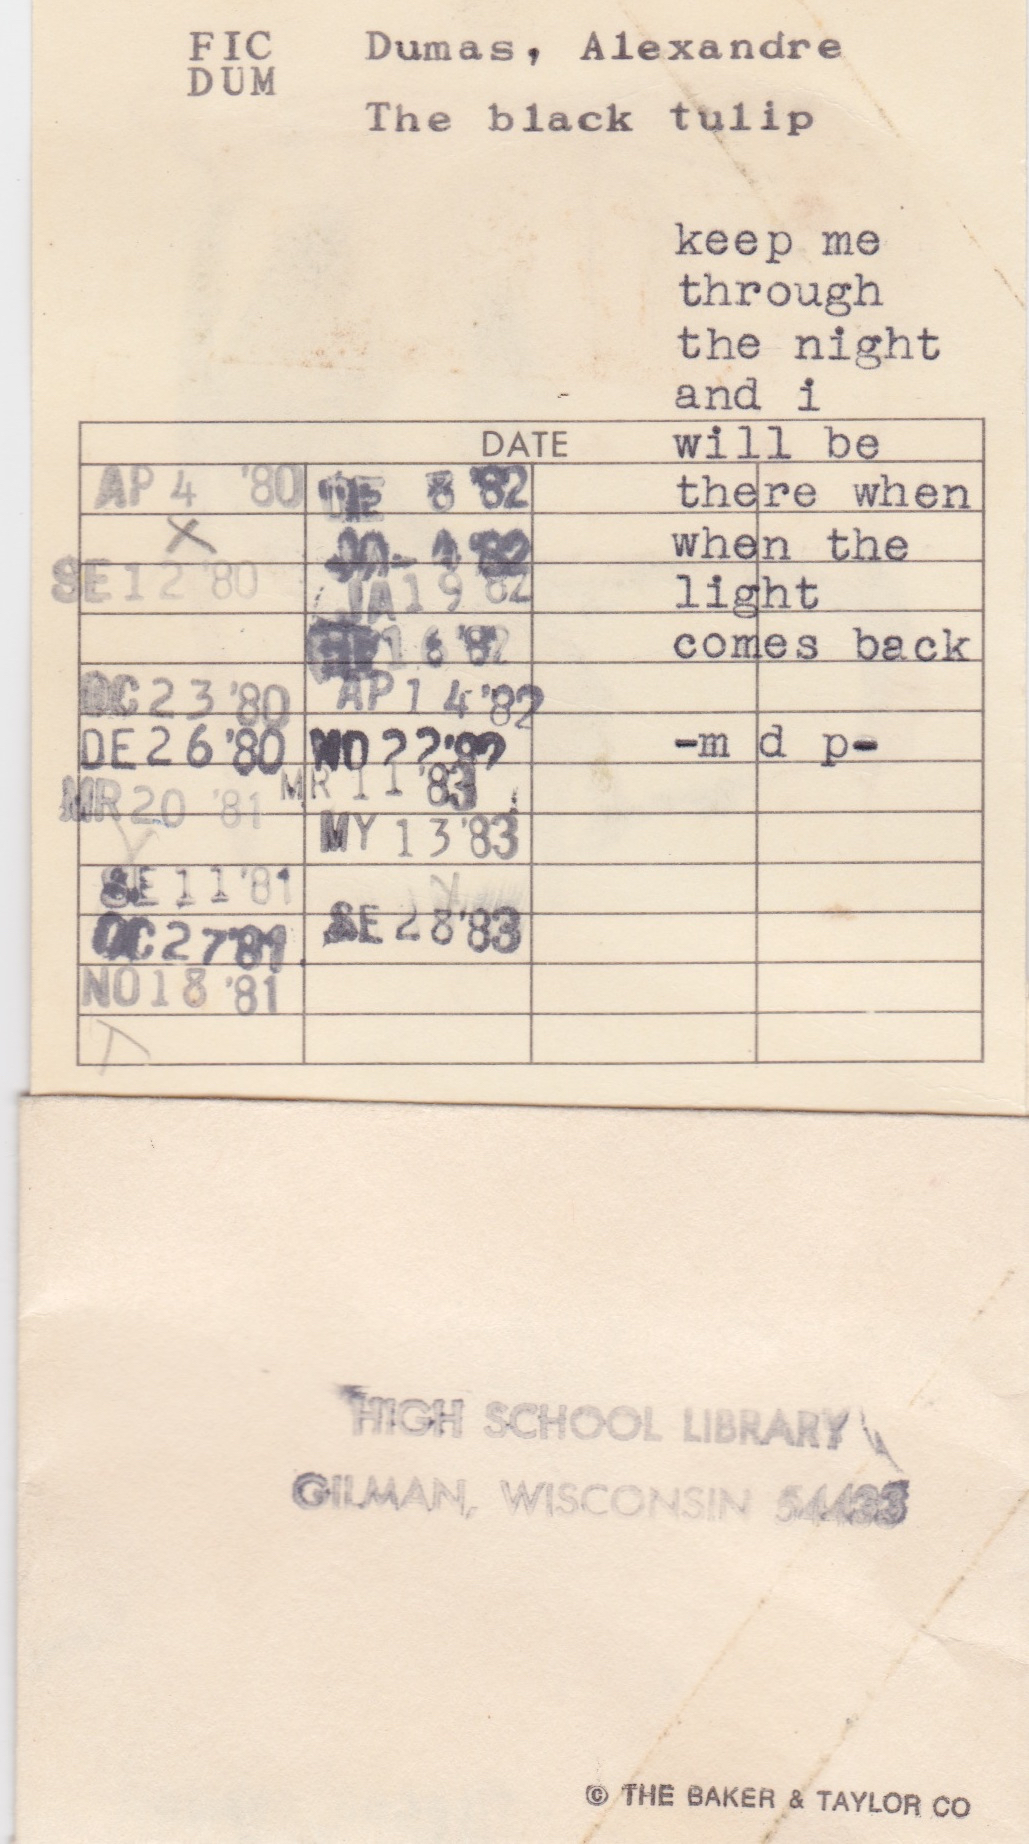 FIC Dumas, Alexandre
DUM
The black tulip
keep me
through
the night
and i
will be
there when
when the
light
comes back
-m d p-
DATE
AP 4 '80
SE 12 '80
OC 23 '80
DE 26 '80
MR 20 '81
SE 11 '81
OC 27 '81
NO 18 '81
8 '82
JA 19 82
16 '82
AP 14 '82
NO 22 '82
MR 11 '83
MY 13 '83
SE 28 '83
HIGH SCHOOL LIBRARY
GILMAN, WISCONSIN 54433
© THE BAKER & TAYLOR CO